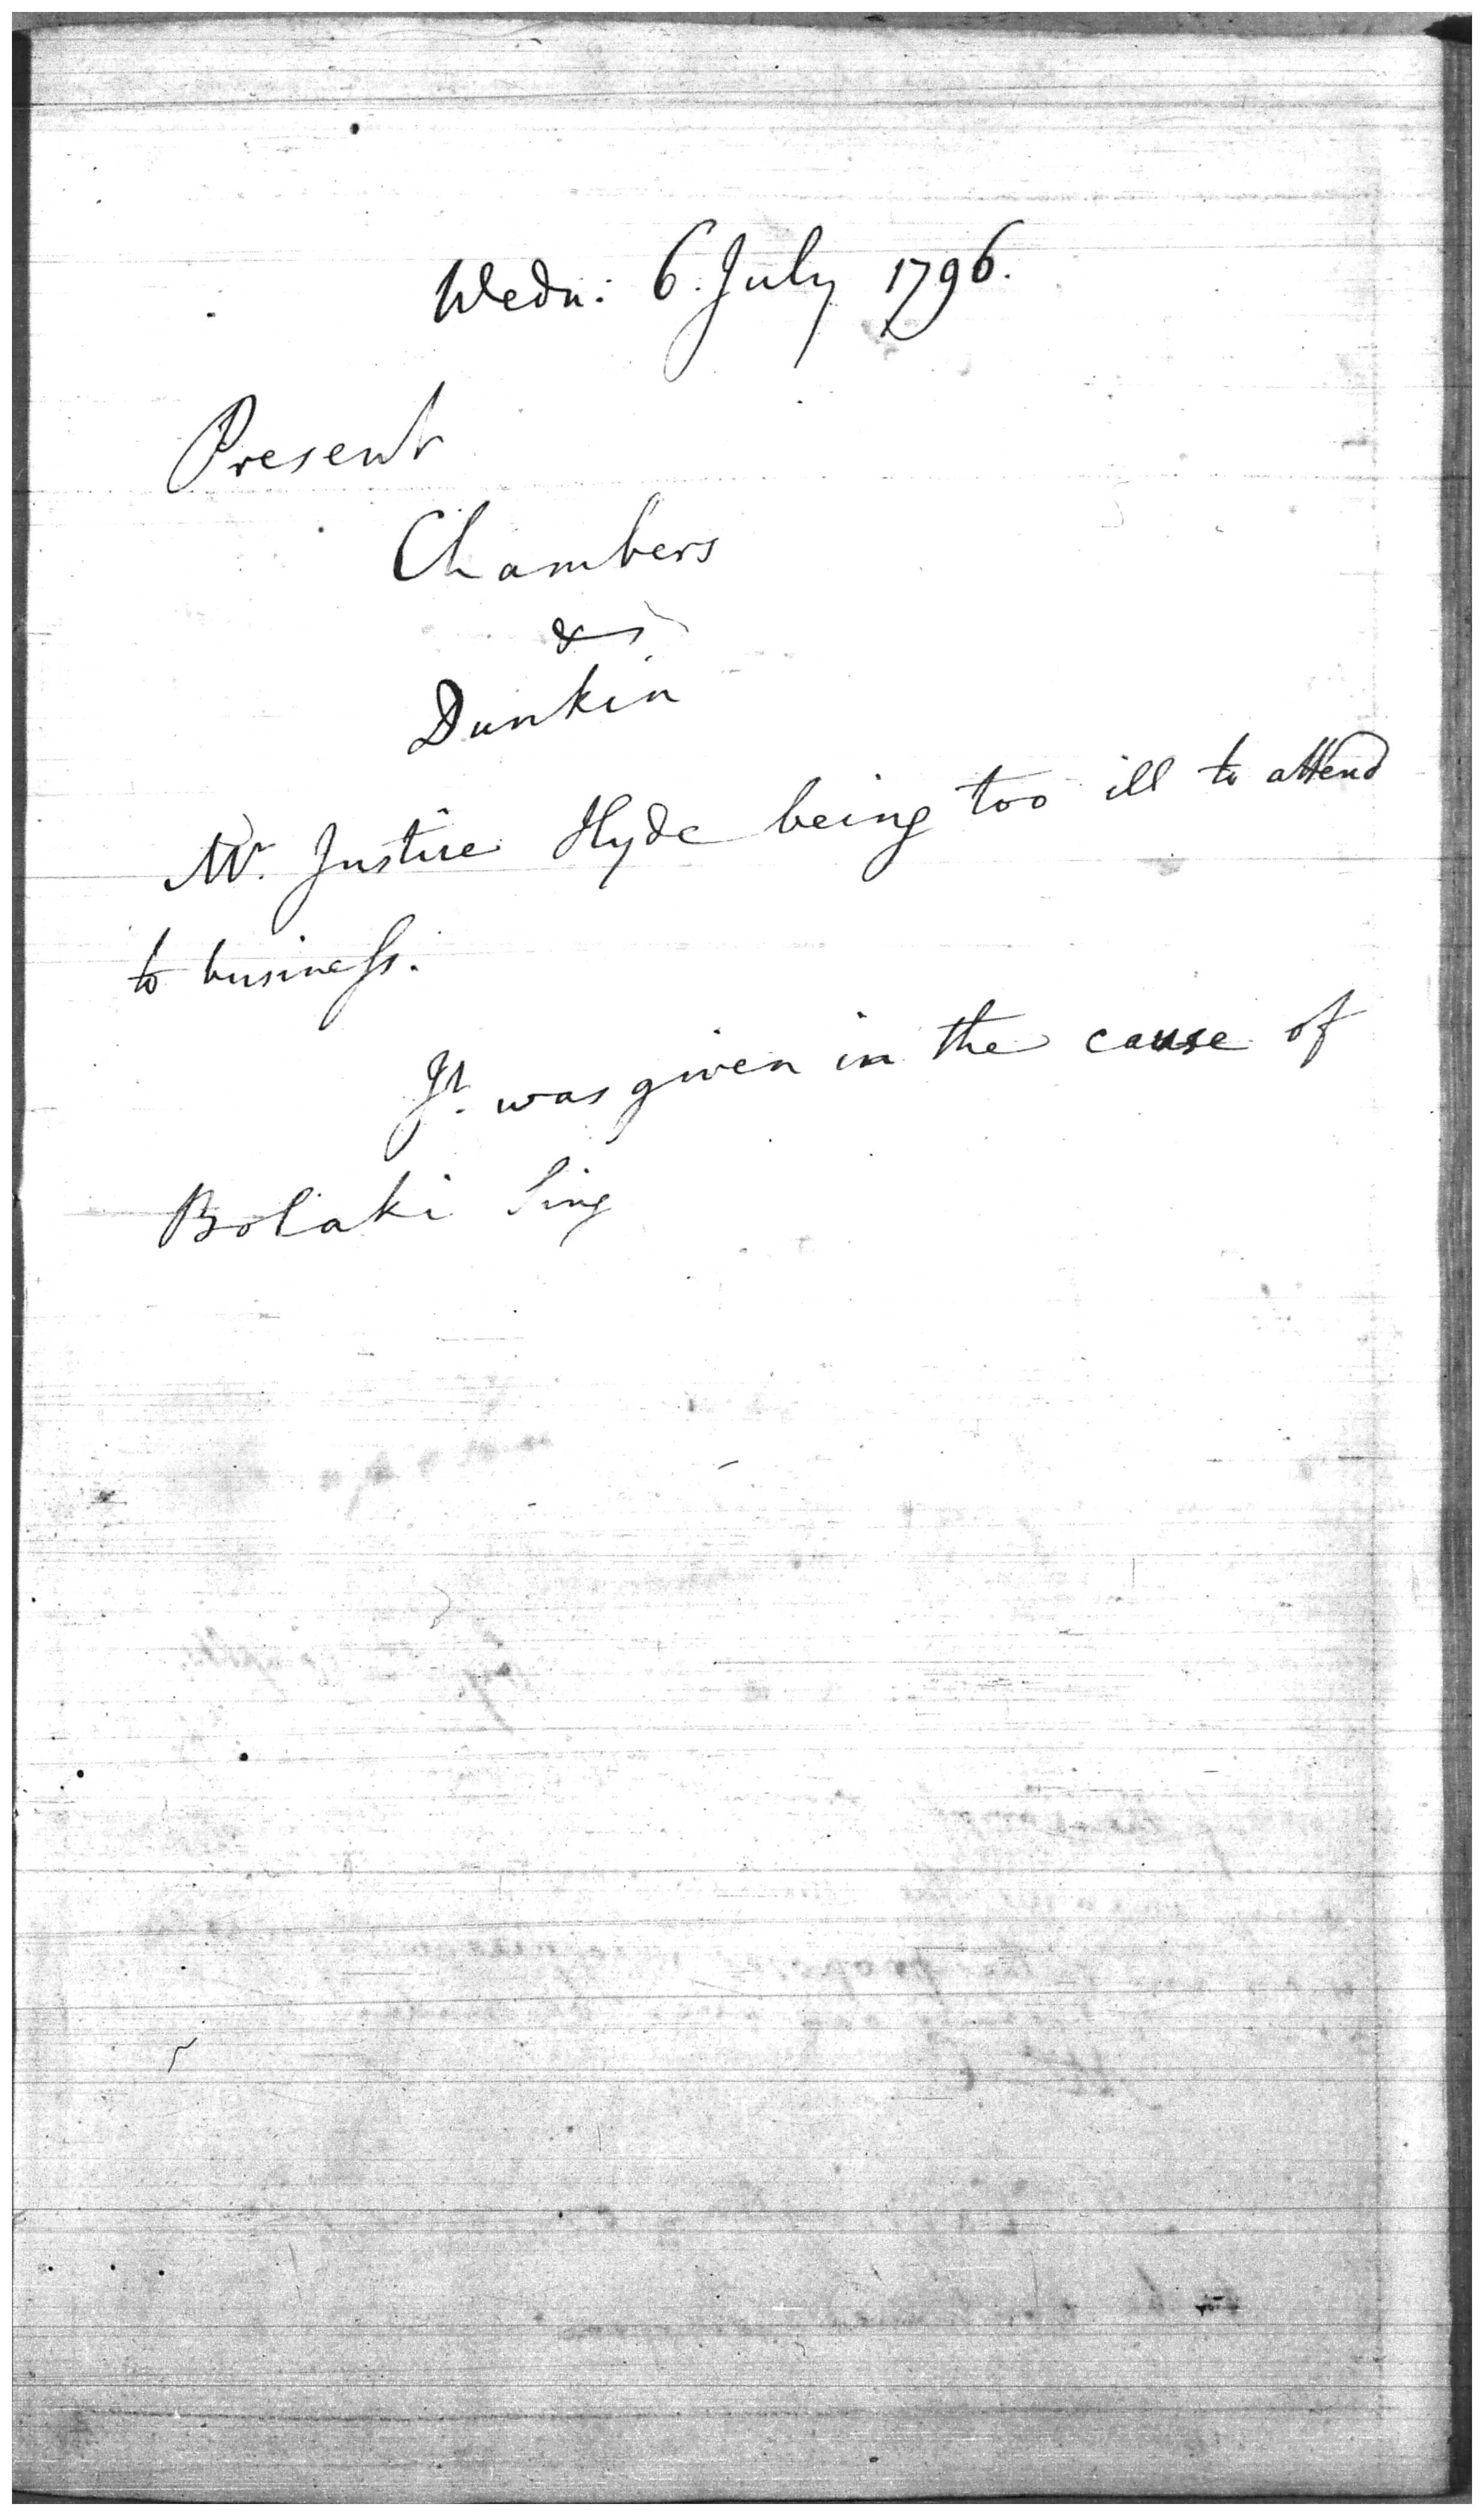 Wedn: 6. July 1796.
Present
Chambers
&
Dunkin
Mr. Justice Hyde being too ill to attend
to business.
Jt. was given in the cause of
Bolaki Sing